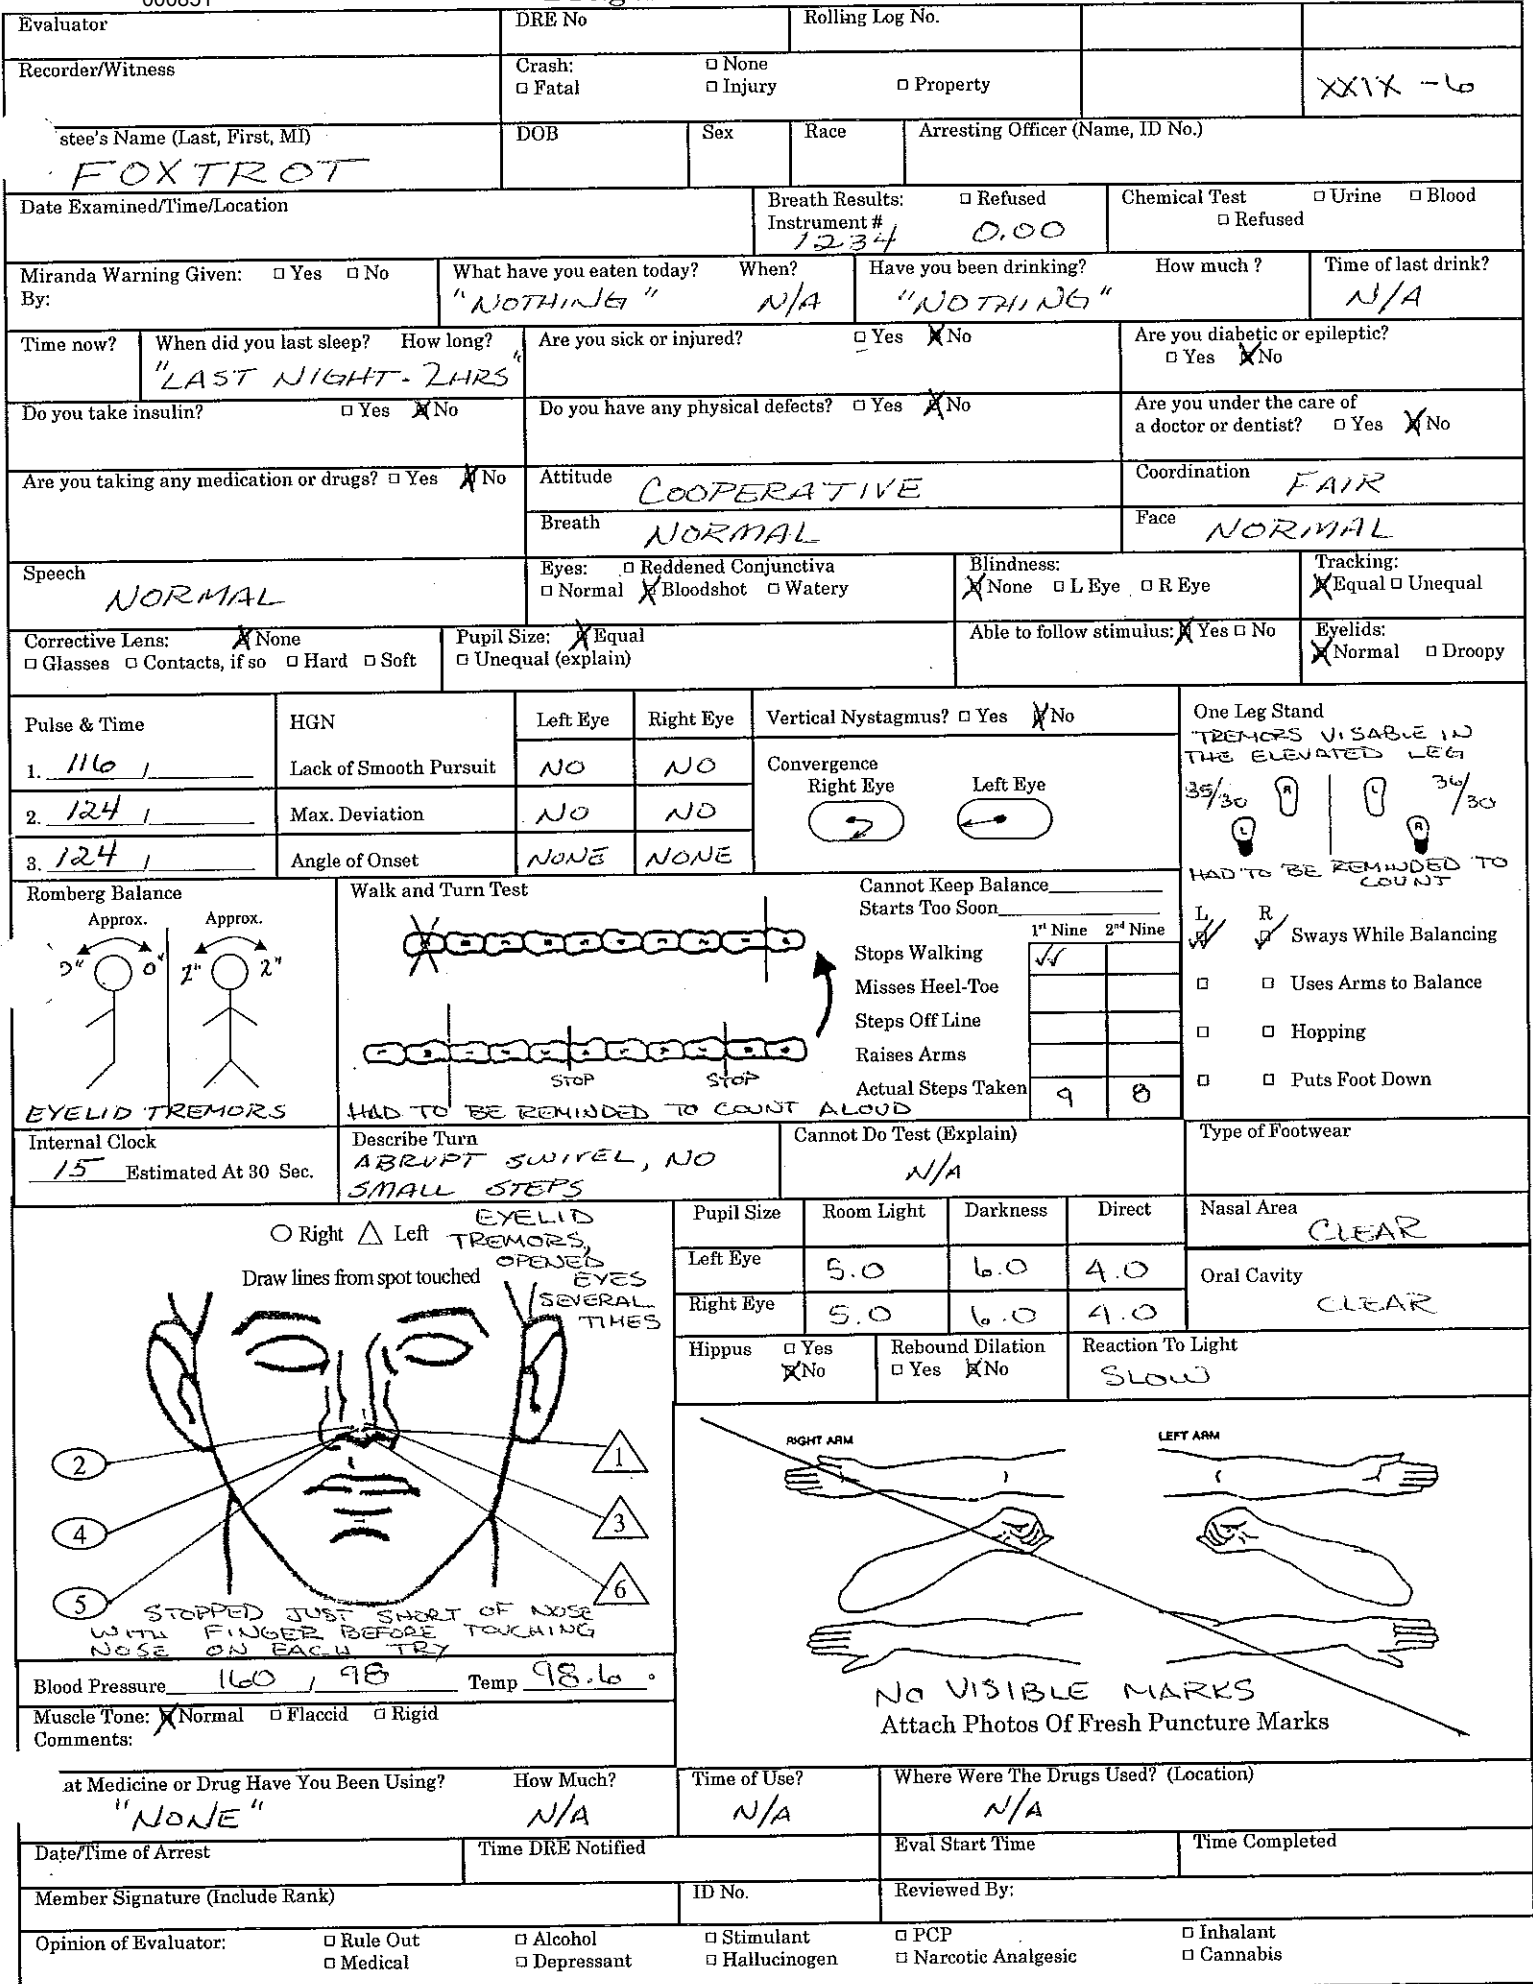 Evaluator
DRE No
Rolling Log No.
Recorder/Witness
Crash: □ None
□ Fatal □ Injury □ Property
XXIX -6
stee's Name (Last, First, MI)
FOXTROT
DOB
Sex
Race
Arresting Officer (Name, ID No.)
Date Examined/Time/Location
Breath Results: □ Refused
Instrument #
1234 0.00
Chemical Test □ Urine □ Blood
□ Refused
Miranda Warning Given: □ Yes □ No
By:
What have you eaten today? When?
"NOTHING" N/A
Have you been drinking? How much ?
"NOTHING"
Time of last drink?
N/A
Time now?
When did you last sleep? How long?
"LAST NIGHT - 2HRS"
Are you sick or injured? □ Yes ☒ No
Are you diabetic or epileptic?
□ Yes ☒ No
Do you take insulin? □ Yes ☒ No
Do you have any physical defects? □ Yes ☒ No
Are you under the care of
a doctor or dentist? □ Yes ☒ No
Are you taking any medication or drugs? □ Yes ☒ No
Attitude COOPERATIVE
Coordination FAIR
Breath NORMAL
Face NORMAL
Speech
NORMAL
Eyes: □ Reddened Conjunctiva
□ Normal ☒ Bloodshot □ Watery
Blindness:
☒ None □ L Eye □ R Eye
Tracking:
☒ Equal □ Unequal
Corrective Lens: ☒ None
□ Glasses □ Contacts, if so □ Hard □ Soft
Pupil Size: ☒ Equal
□ Unequal (explain)
Able to follow stimulus: ☒ Yes □ No
Eyelids:
☒ Normal □ Droopy
Pulse & Time
1. 116 /
2. 124 /
3. 124 /
HGN Left Eye Right Eye
Lack of Smooth Pursuit NO NO
Max. Deviation NO NO
Angle of Onset NONE NONE
Vertical Nystagmus? □ Yes ☒ No
Convergence
Right Eye Left Eye
One Leg Stand
TREMORS VISABLE IN
THE ELEVATED LEG
35/30 R L 36/30
L R
HAD TO BE REMINDED TO
COUNT
L R
Sways While Balancing
□ □ Uses Arms to Balance
□ □ Hopping
□ □ Puts Foot Down
Romberg Balance
Approx. Approx.
0" 0" 2" 2"
EYELID TREMORS
Walk and Turn Test
STOP STOP
HAD TO BE REMINDED TO COUNT ALOUD
Cannot Keep Balance
Starts Too Soon
1st Nine 2nd Nine
Stops Walking ✓✓
Misses Heel-Toe
Steps Off Line
Raises Arms
Actual Steps Taken 9 8
Internal Clock
15 Estimated At 30 Sec.
Describe Turn
ABRUPT SWIVEL, NO
SMALL STEPS
Cannot Do Test (Explain)
N/A
Type of Footwear
○ Right △ Left
Draw lines from spot touched
EYELID
TREMORS,
OPENED
EYES
SEVERAL
TIMES
2 1
4 3
5 6
STOPPED JUST SHORT OF NOSE
WITH FINGER BEFORE TOUCHING
NOSE ON EACH TRY
Pupil Size Room Light Darkness Direct
Left Eye 5.0 6.0 4.0
Right Eye 5.0 6.0 4.0
Nasal Area
CLEAR
Oral Cavity
CLEAR
Hippus □ Yes
☒ No
Rebound Dilation
□ Yes ☒ No
Reaction To Light
SLOW
RIGHT ARM LEFT ARM
NO VISIBLE MARKS
Attach Photos Of Fresh Puncture Marks
Blood Pressure 160 / 98 Temp 98.6 °
Muscle Tone: ☒ Normal □ Flaccid □ Rigid
Comments:
at Medicine or Drug Have You Been Using?
"NONE"
How Much?
N/A
Time of Use?
N/A
Where Were The Drugs Used? (Location)
N/A
Date/Time of Arrest
Time DRE Notified
Eval Start Time
Time Completed
Member Signature (Include Rank)
ID No.
Reviewed By:
Opinion of Evaluator: □ Rule Out □ Alcohol □ Stimulant □ PCP □ Inhalant
□ Medical □ Depressant □ Hallucinogen □ Narcotic Analgesic □ Cannabis